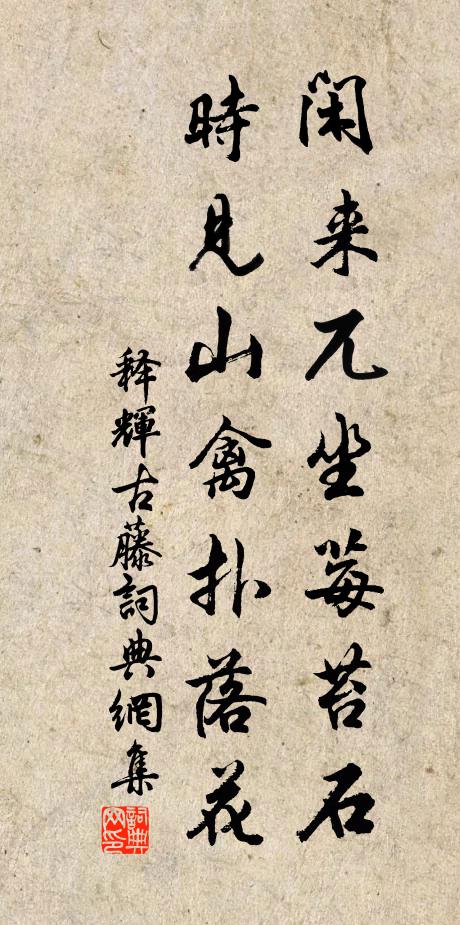 闲来兀坐莓苔石
時見山禽扑落花
释輝古藤詞典網集
詞典
网印